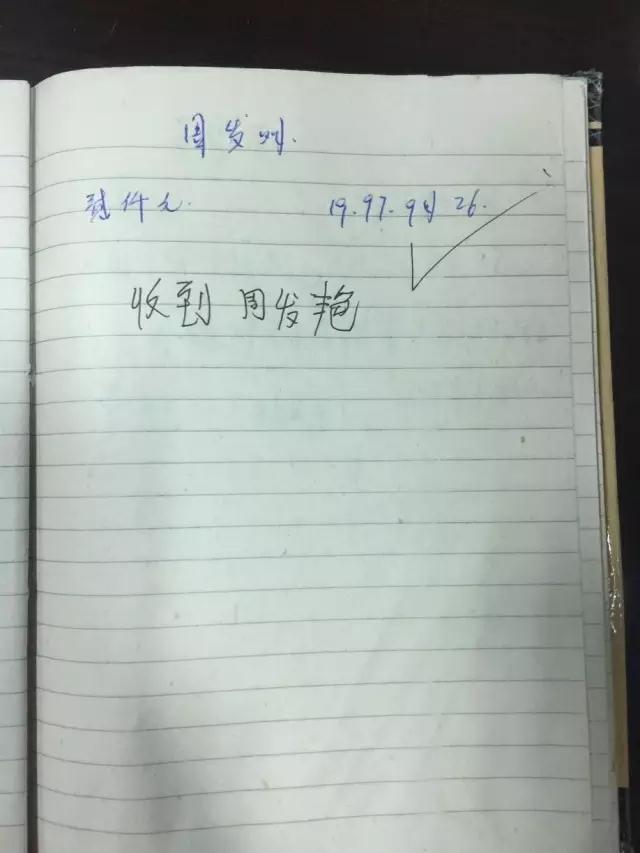 周发明.
贰仟元. 19.97.9月26.
收到 周发艳